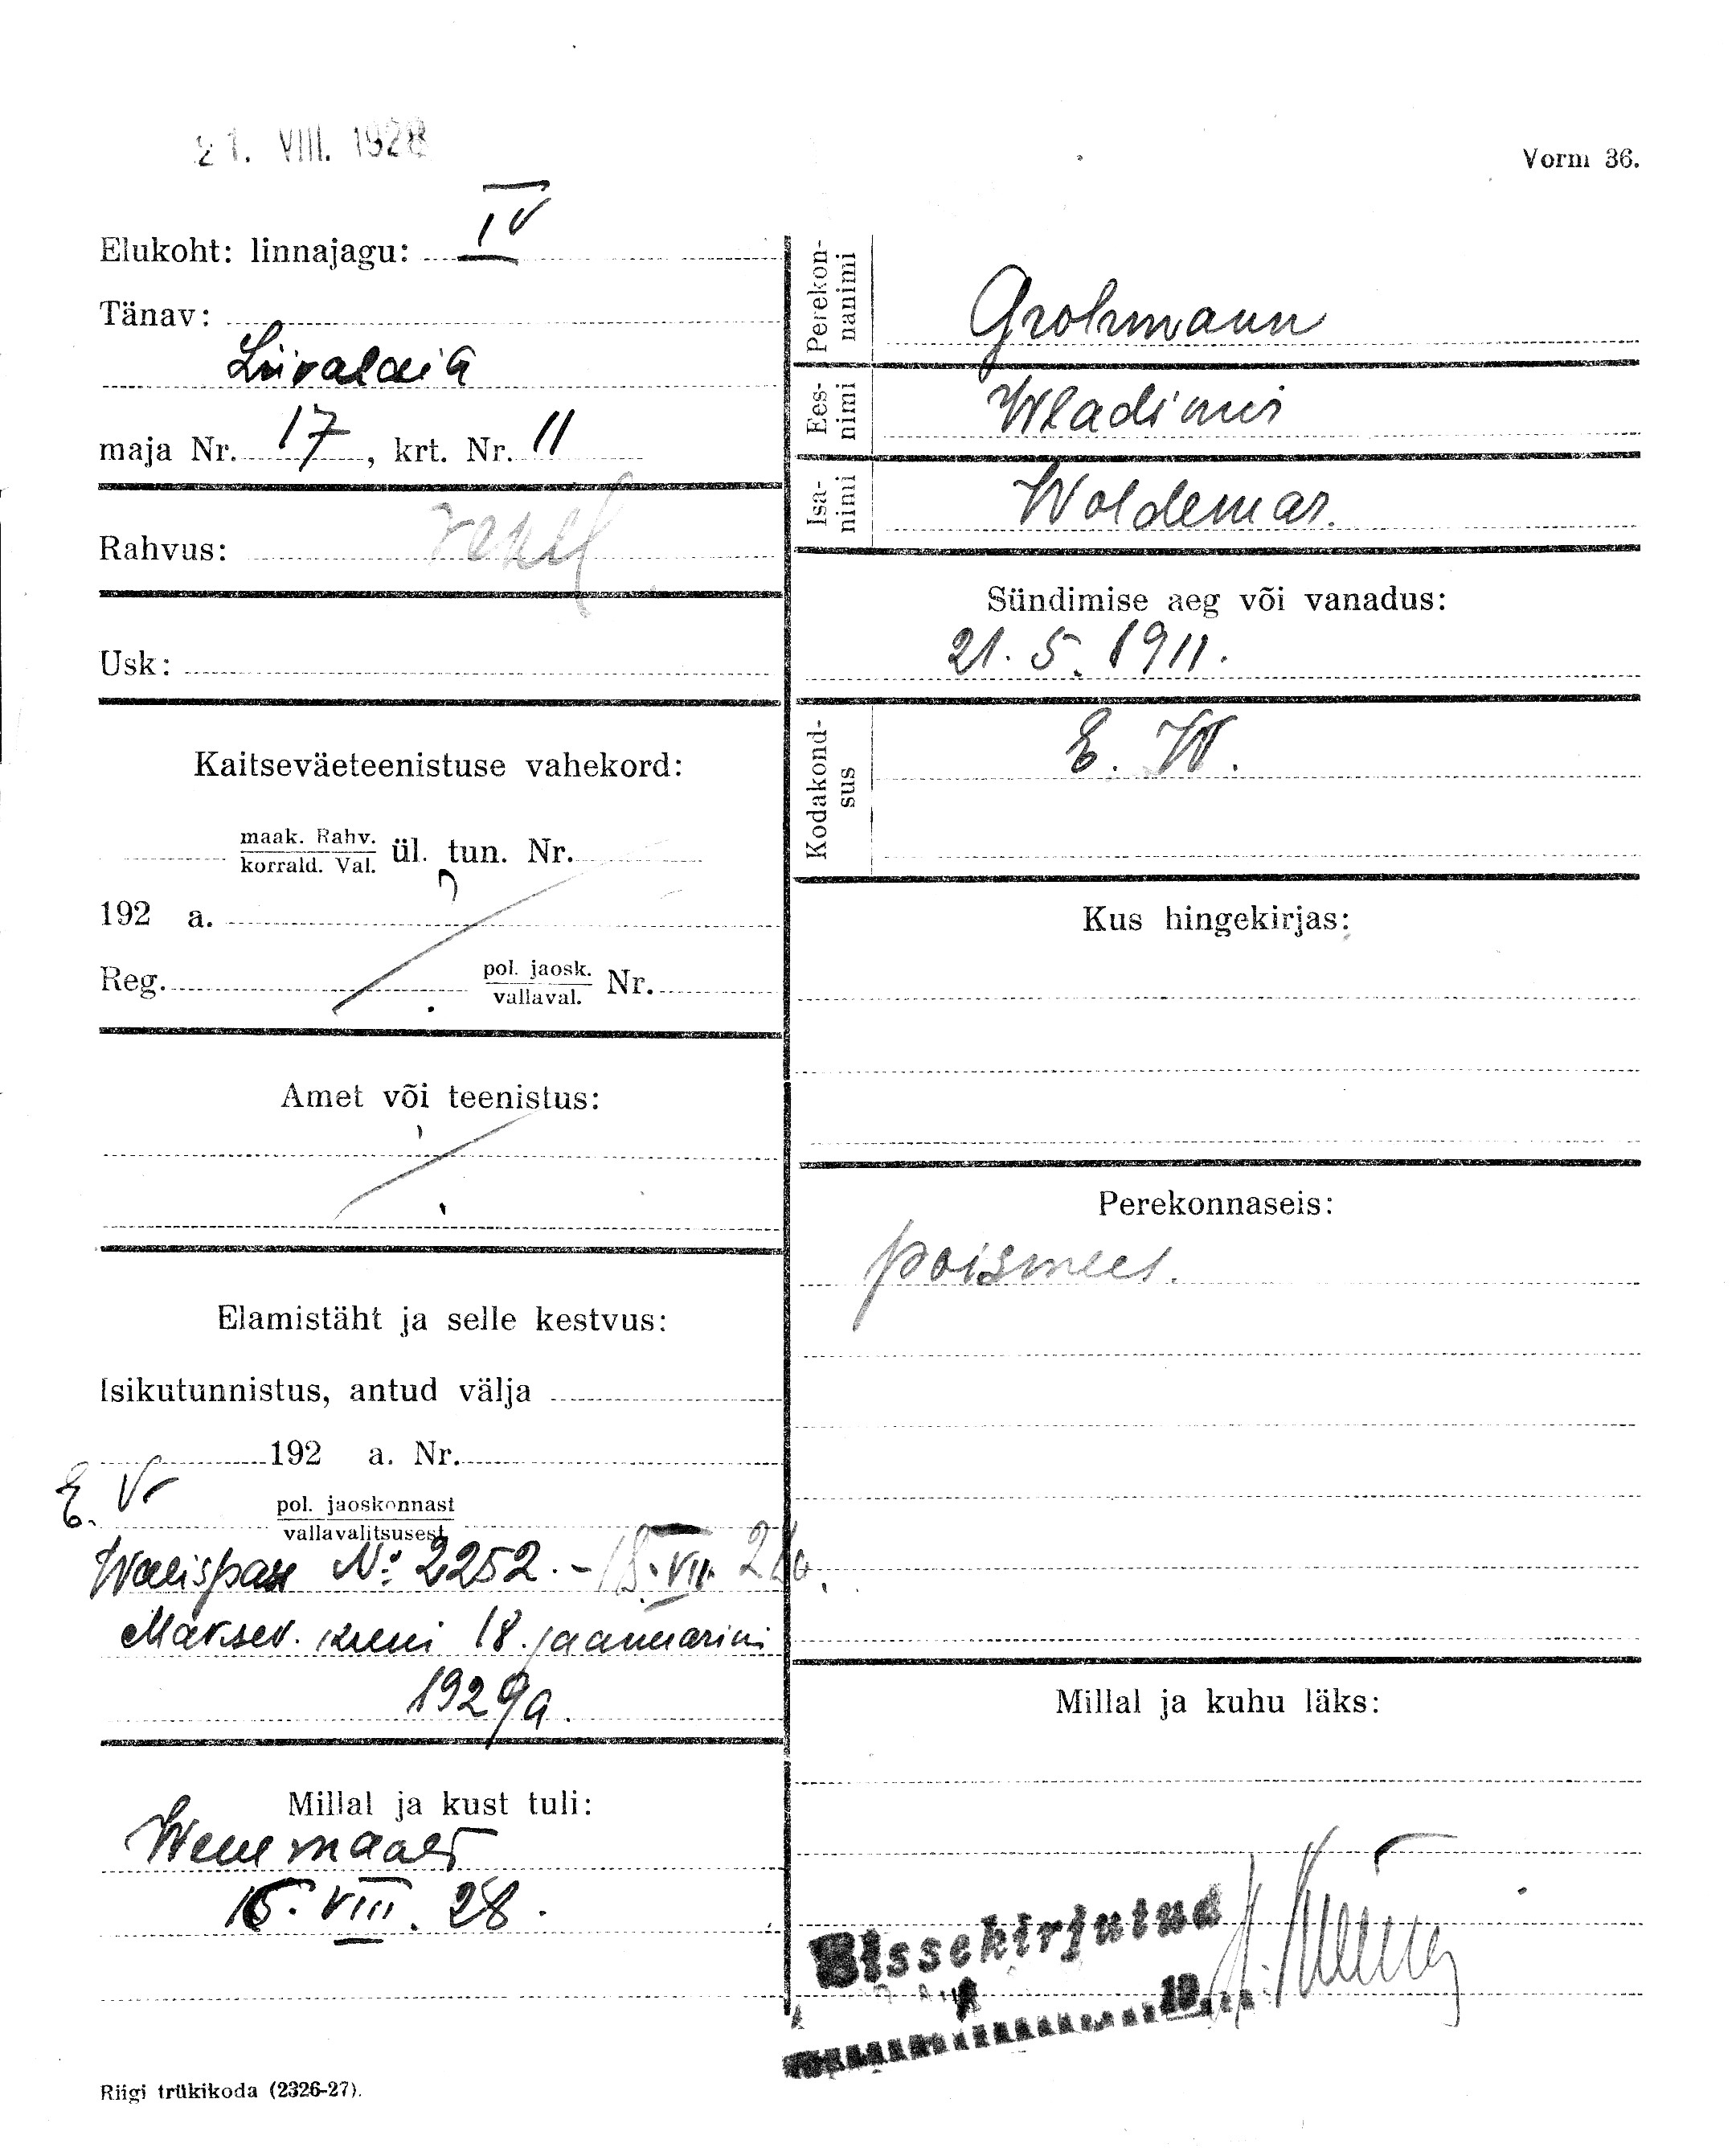 21. VIII. 1928
Vorm 36.
Elukoht: linnajagu: IV
Tänav:
Liivalaia
maja Nr. 17, krt. Nr. 11
Rahvus:
Usk:
Kaitseväeteenistuse vahekord:
maak. Rahv.
korrald. Val. ül. tun. Nr.
192 a.
Reg. pol. jaosk.
vallaval. Nr.
Amet või teenistus:
Elamistäht ja selle kestvus:
Isikutunnistus, antud välja
192 a. Nr.
E. V.
pol. jaoskonnast
vallavalitsusest
Walispass No: 2252. - 18. VII 28a.
Maksev. kuni 18. jaanuarini
1929a.
Millal ja kust tuli:
Wenemaalt
15. VIII. 28.
Riigi trükikoda (2326-27).
Perekon-
nanimi
Grohmann
Ees-
nimi
Wladimir
Isa-
nimi
Woldemar.
Sündimise aeg või vanadus:
21. 5. 1911.
Kodakond-
sus
E. W.
Kus hingekirjas:
Perekonnaseis:
poismees.
Millal ja kuhu läks:
Sissekirjutud
19